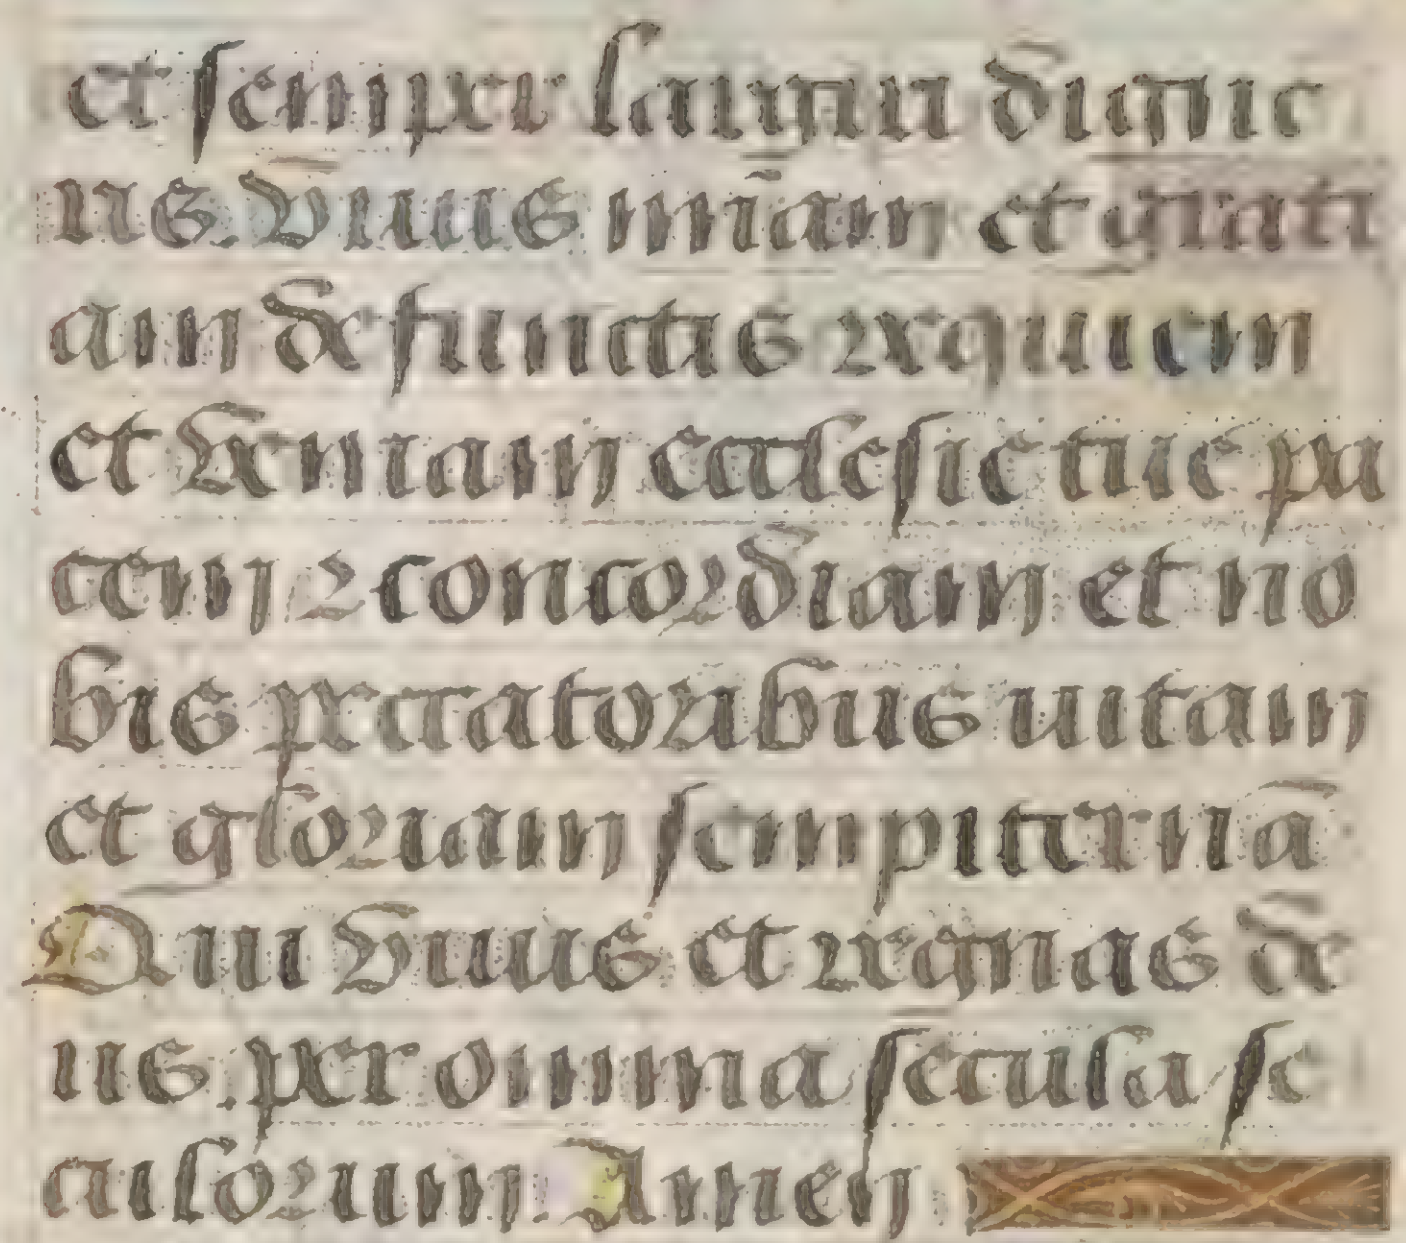 et semper largiri digne
ris. Viuis mīam et grati
am defunctis requiem
et veniam ecclesie tue pa
cem ⁊ concordiam et no
bis peccatoribus uitam
et gloriam sempiternā
Qui viuis et regnas de
us. per omnia secula se
culorum. Amen